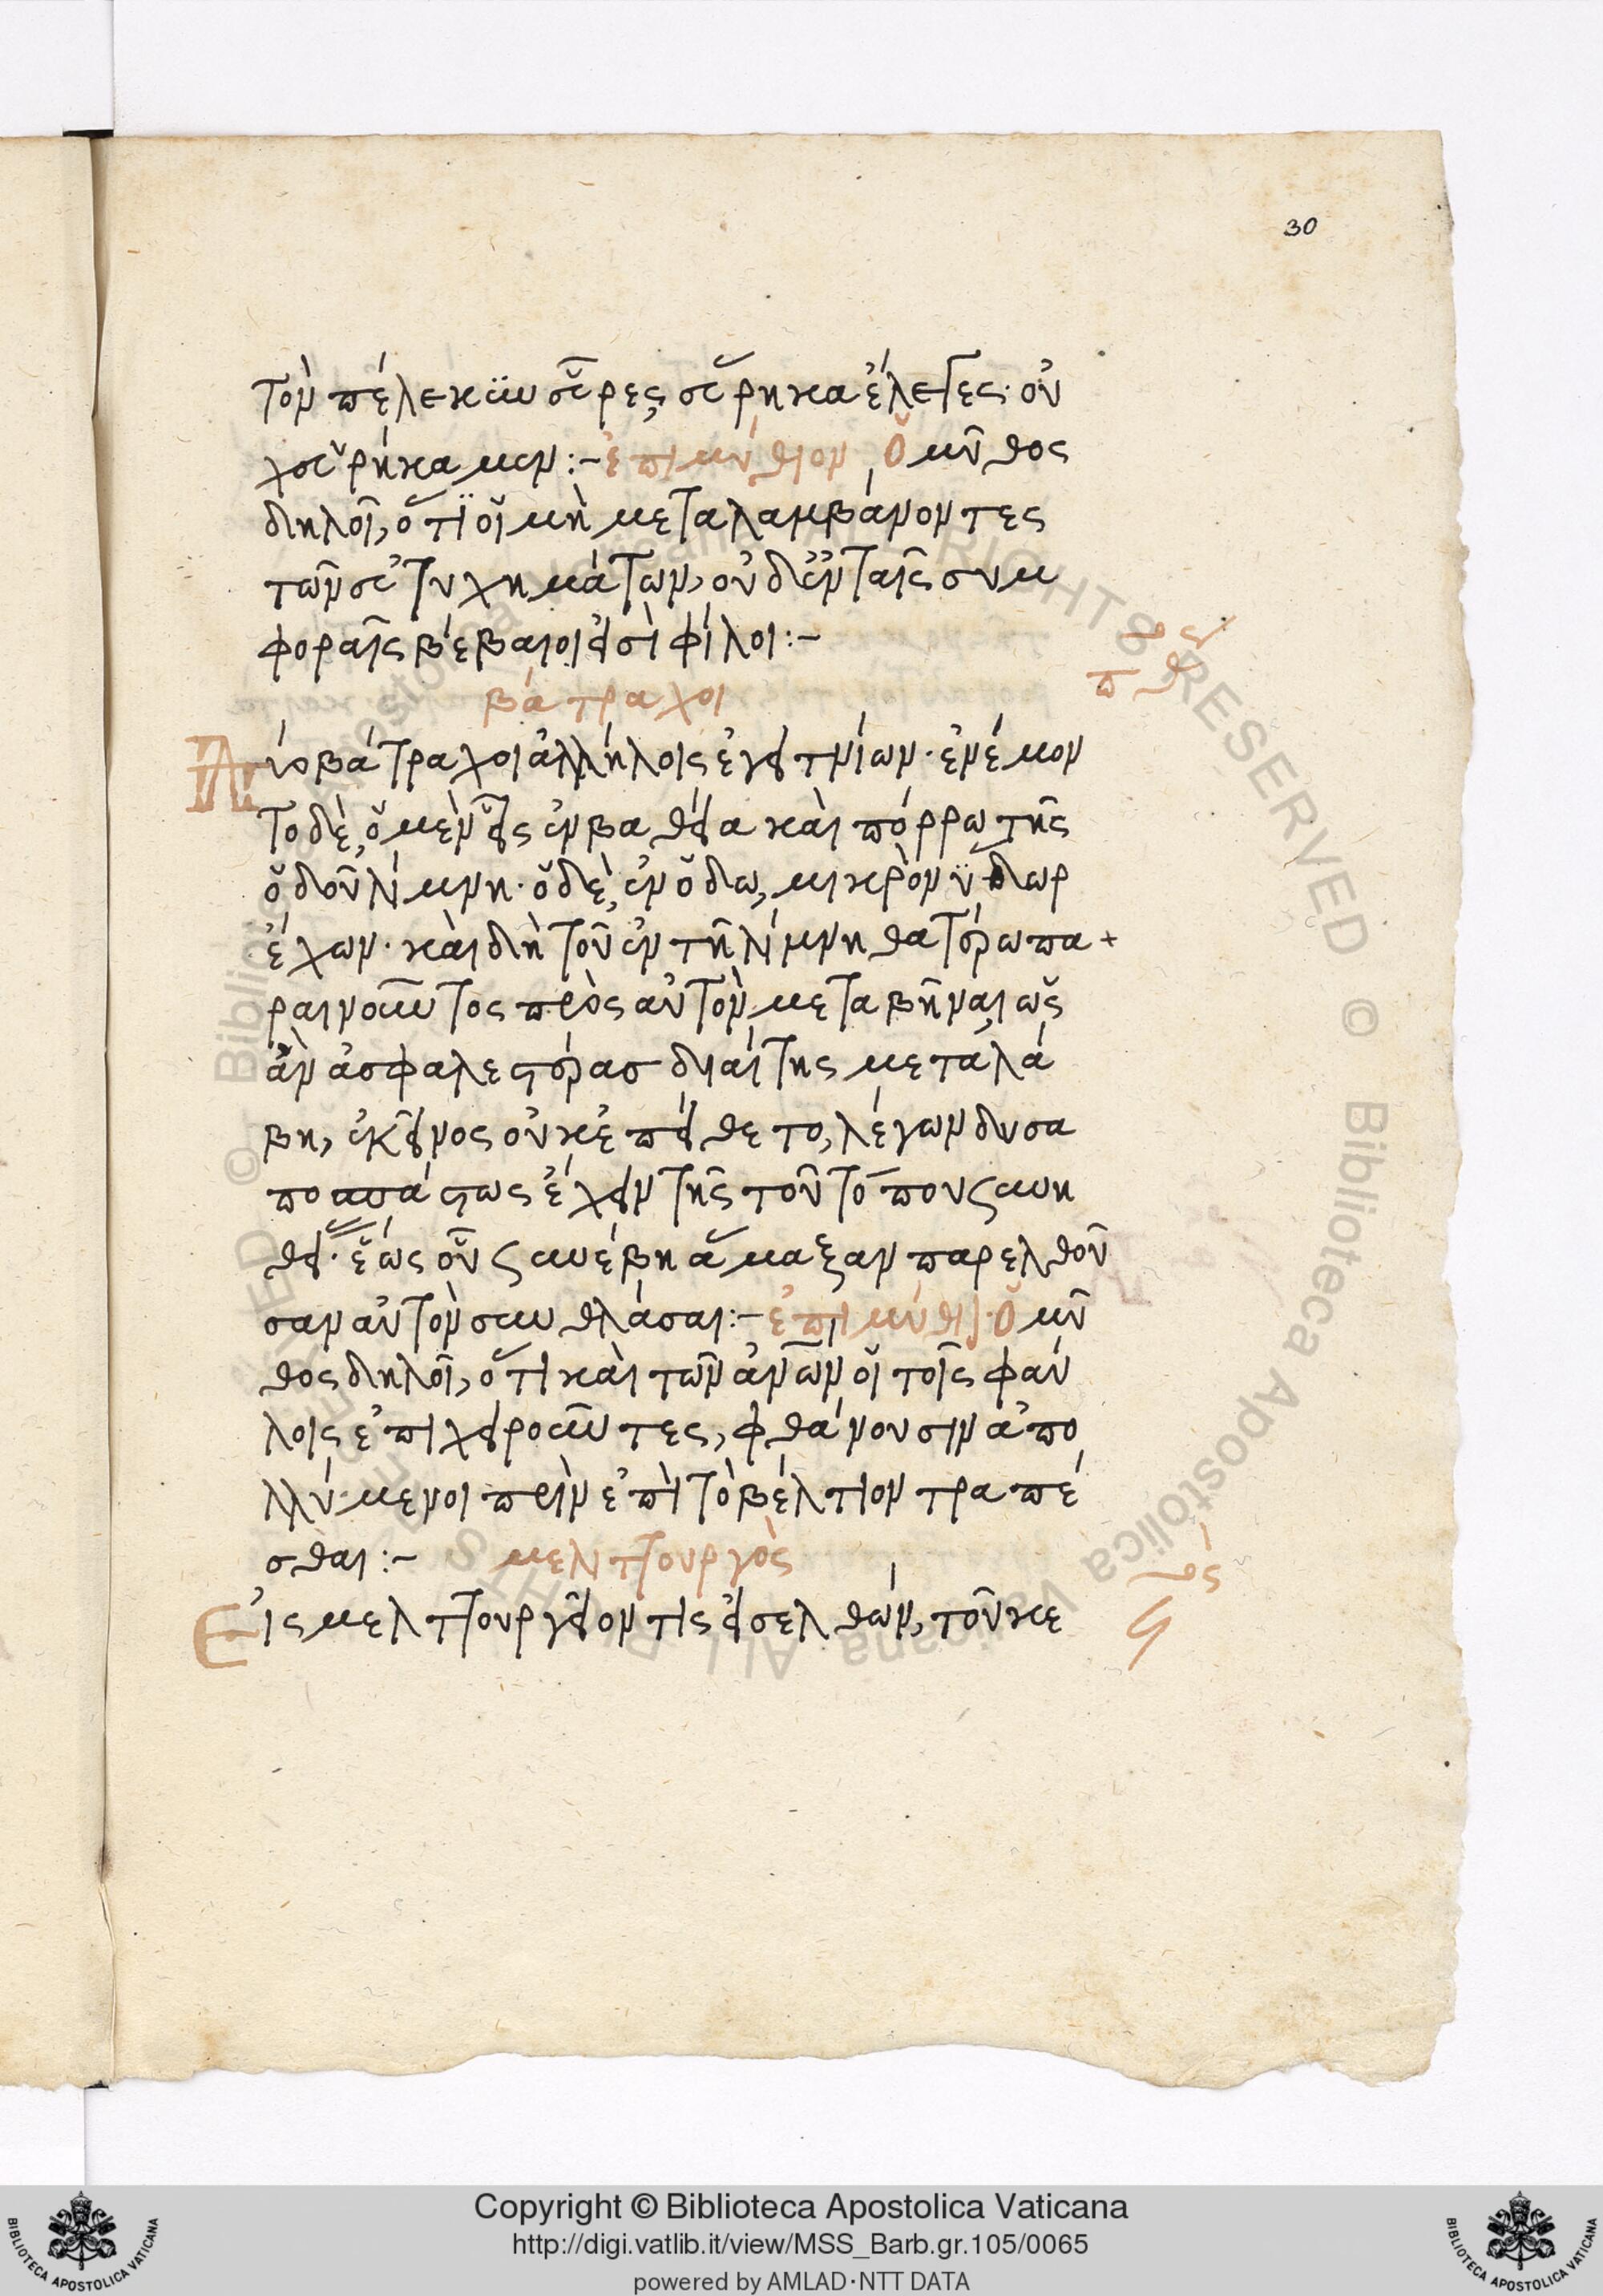 30
τὸν πέλεκυν εὗρες, εὕρηκα ἔλεγες· οὐ
χ εὑρήκαμεν :- ἐπιμύθιον Ὁ μῦθος
δηλοῖ, ὅτι οἱ μὴ μεταλαμβάνοντες
τῶν εὐτυχημάτων, οὐδ' ἐν ταῖς συμ
φοραῖς βέβαιοι εἰσὶ φίλοι :-
βάτραχοι
Δύο βάτραχοι ἀλλήλοις ἐγειτνίων· ἐνέμον
το δὲ, ὁ μὲν εἷς ἐν βαθείᾳ καὶ πόρρω τῆς
ὁδοῦ λίμνη· ὁ δὲ, ἐν ὁδω, μικρὸν ὕδωρ
ἔχων· καὶ δὴ τοῦ ἐν τῆ λίμνη θατέρω πα
ραινοῦντος πρὸς αὐτὸν μεταβῆναι ὡς
ἂν ἀσφαλεστέρας διαίτης μεταλά
βη, ἐκεῖνος οὐκ ἐπείθετο, λέγων δυσα
ποσπάστως ἔχειν τῆς τοῦ τόπου συνη
θεί· ἕως οὗ συνέβη ἅμαξαν παρελθοῦ
σαν αὐτὸν συνθλάσαι :- ἐπιμύθι· Ὁ μῦ
θος δηλοῖ, ὅτι καὶ τῶν ἀνῶν οἱ τοῖς φαύ
λοις ἐπιχειροῦντες, φθάνουσιν ἀπο
λλύμενοι πρὶν ἐπὶ τὸ βέλτιον τραπέ
σθαι :- μελιτουργὸς
Εἰς μελιτουργεῖον τὶς εἰσελθὼν, τοῦ κε
Copyright © Biblioteca Apostolica Vaticana
http://digi.vatlib.it/view/MSS_Barb.gr.105/0065
powered by AMLAD·NTT DATA